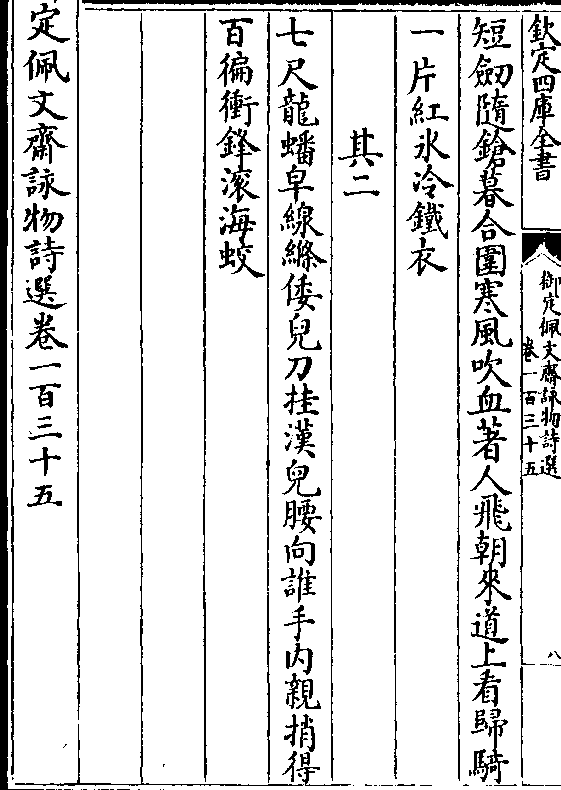 欽定四庫全書
御定佩文齋詠物詩選
卷一百三十五
八
短劒隨鎗暮合圍寒風吹血著人飛朝來道上看歸騎
一片紅氷冷鐵衣
其二
七尺龍蟠皁線縧倭兒刀挂漢兒腰向誰手内親捎得
百徧衝鋒滚海蛟
定佩文齋詠物詩選卷一百三十五